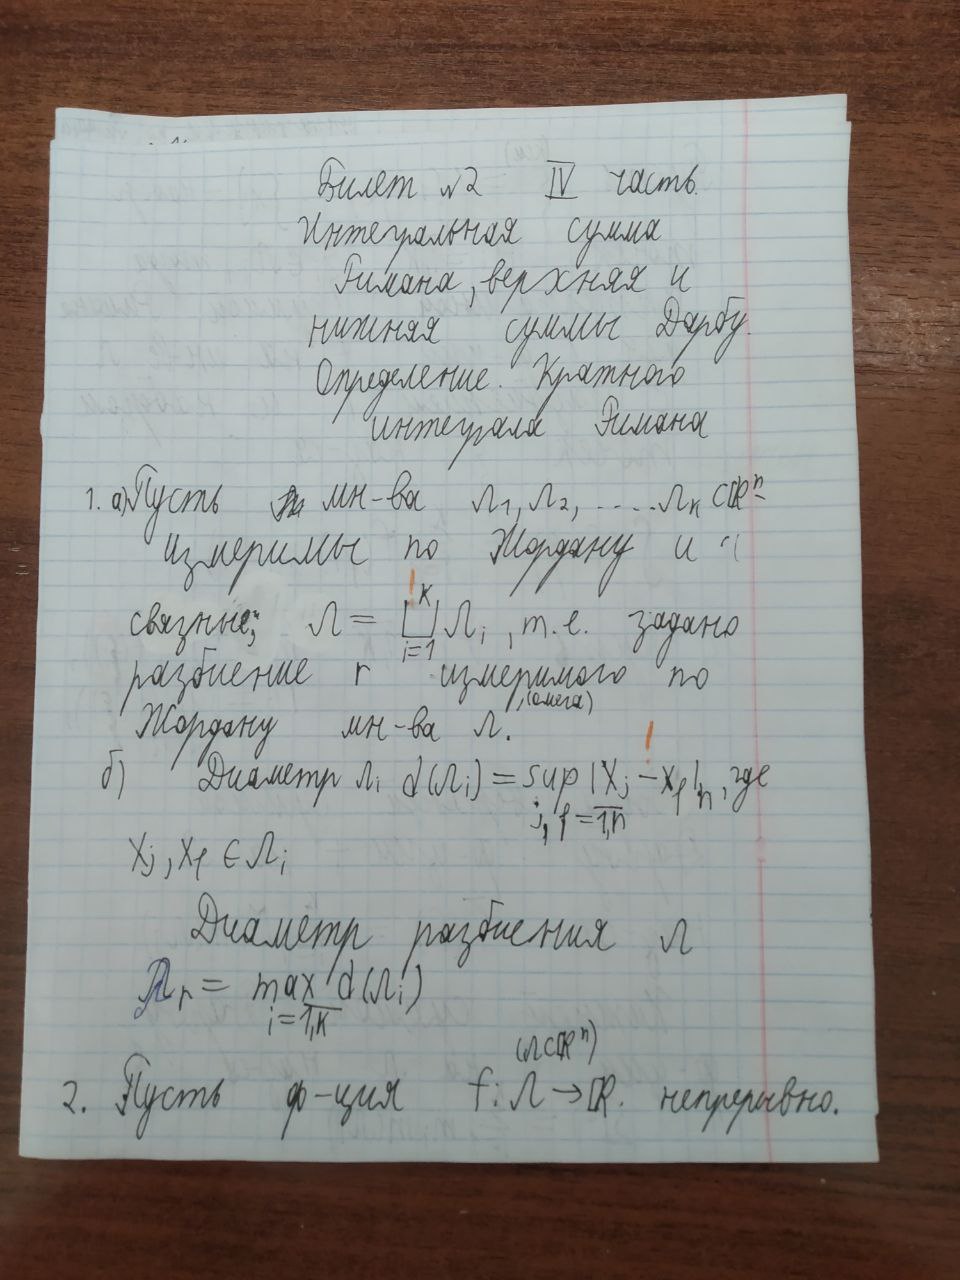 Билет №2 IV часть.
Интегральная сумма
Римана, верхняя и
нижняя суммы Дарбу.
Определение. Кратного
интеграла Римана
1. а) Пусть мн-ва Ω₁, Ω₂, ..... Ωₖ ⊂ ℝⁿ -
измеримы по Жордану и
связные; Ω = ⊔ᵢ₌₁ᵏ Ωᵢ, т.е. задано
разбиение r измеримого по
Жордану мн-ва Ω. (омега)
б) Диаметр Ωᵢ d(Ωᵢ) = sup |Xⱼ - X_f|ₙ, где
j, f = 1,n
Xⱼ, X_f ∈ Ωᵢ
Диаметр разбиения Ω
λᵣ = max d(Ωᵢ)
i = 1,k
(Ω ⊂ ℝⁿ)
2. Пусть ф-ция f: Ω → ℝ. непрерывно.